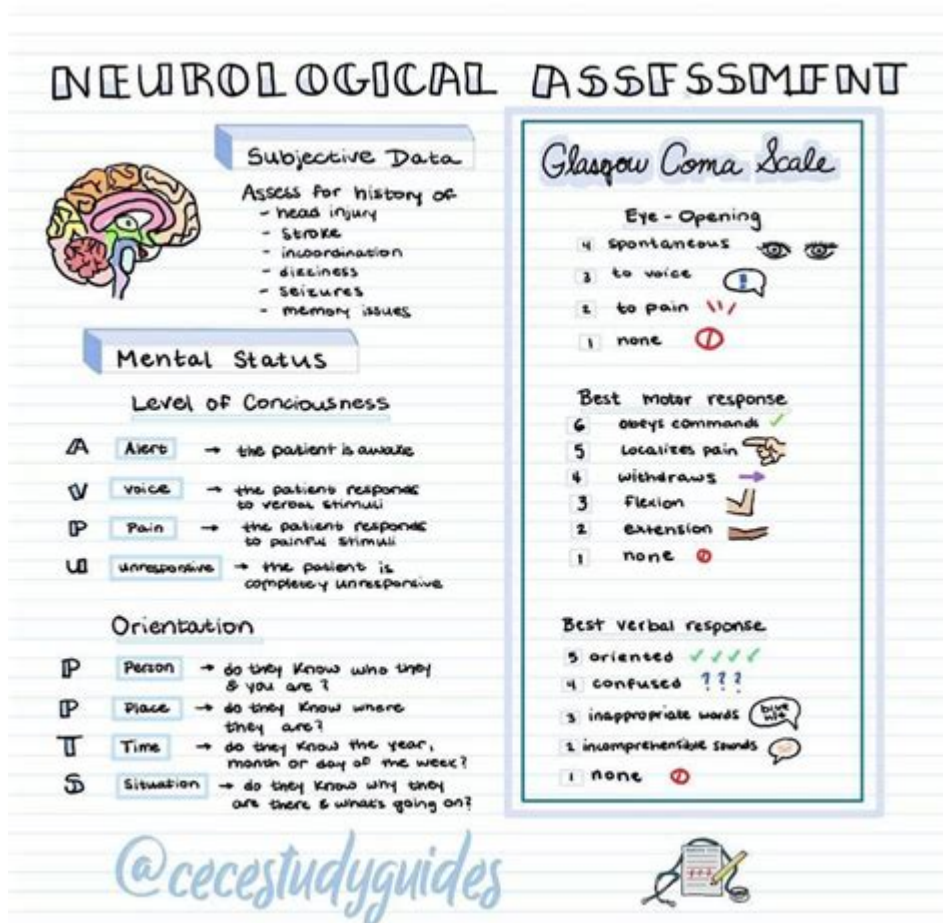 NEUROLOGICAL ASSESSMENT
Subjective Data
Assess for history of
- head injury
- stroke
- incoordination
- dizziness
- seizures
- memory issues
Mental Status
Level of Conciousness
A Alert → the patient is awake
V voice → the patient responds
to verbal stimuli
P Pain → the patient responds
to painful stimuli
U unresponsive → the patient is
completely unresponsive
Orientation
P Person → do they know who they
& you are?
P Place → do they know where
they are?
T Time → do they know the year,
month or day of the week?
S Situation → do they know why they
are there & what's going on?
@cecestudyguides
Glasgow Coma Scale
Eye-Opening
4 spontaneous
3 to voice
2 to pain
1 none
Best motor response
6 obeys commands
5 Localizes pain
4 withdraws
3 flexion
2 extension
1 none
Best verbal response
5 oriented
4 confused ???
3 inappropriate words
2 incomprehensible sounds
1 none